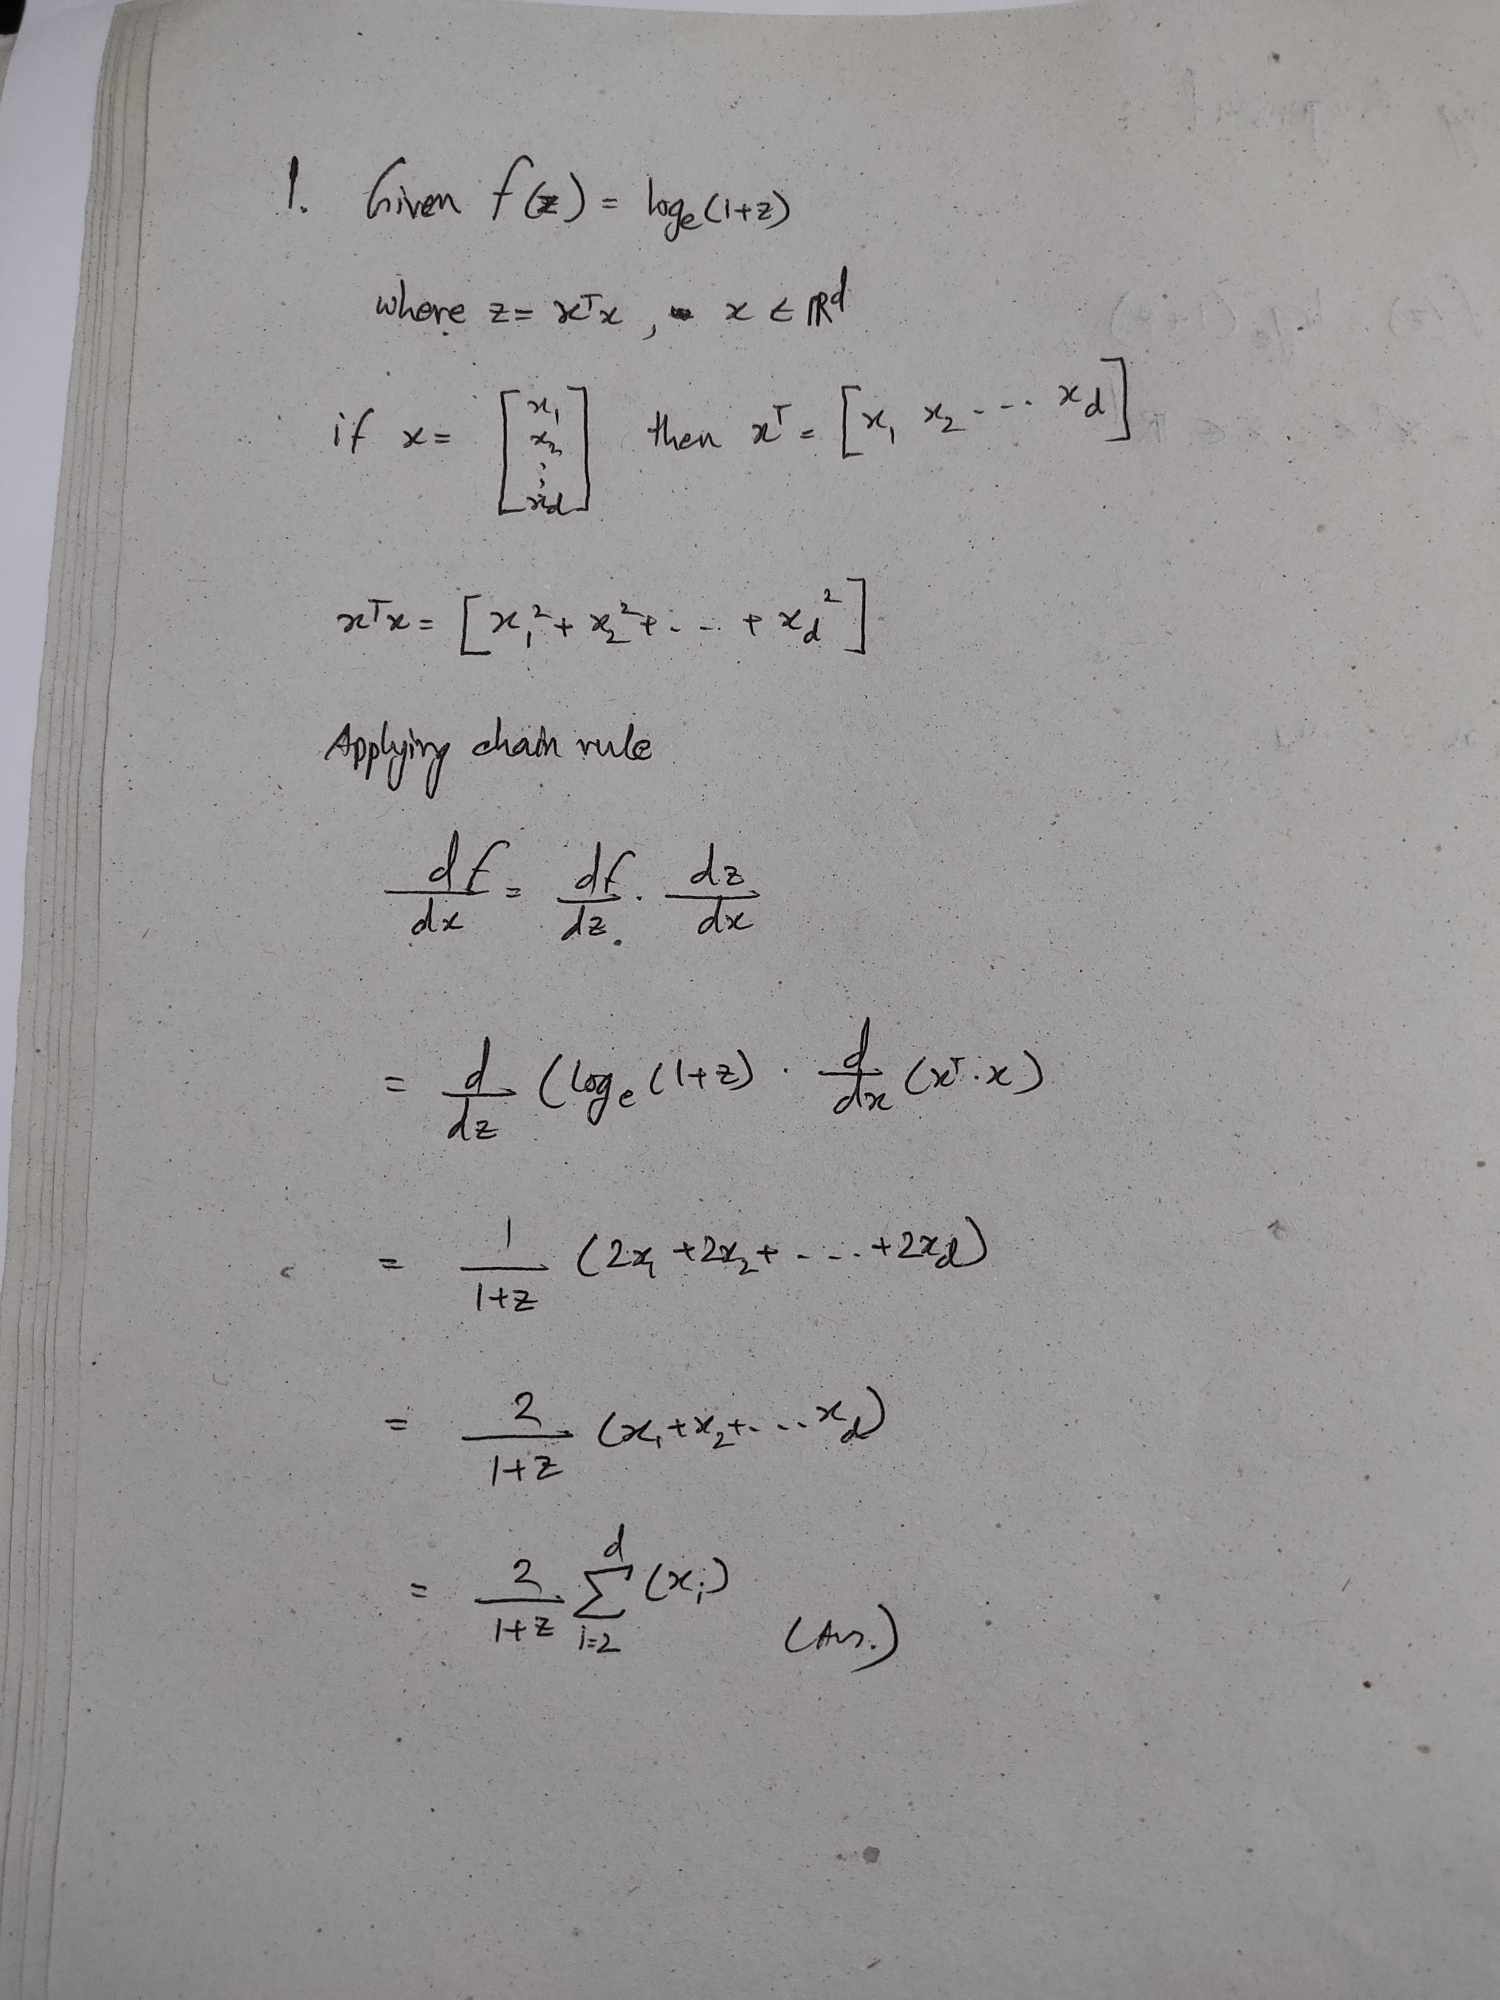 1. Given f(z) = logₑ(1+z)
where z = xᵀx, x ∈ ℝᵈ
if x = [x₁ x₂ ⋮ x_d] then xᵀ = [x₁ x₂ --- x_d]
xᵀx = [x₁² + x₂² + - -- + x_d²]
Applying chain rule
df/dx = df/dz . dz/dx
= d/dz (logₑ(1+z) . d/dx (xᵀ.x)
= 1/(1+z) (2x₁ + 2x₂ + - --- + 2x_d)
= 2/(1+z) (x₁ + x₂ + - -- x_d)
= 2/(1+z) ∑_{i=2}^{d} (xᵢ)
(Ans.)